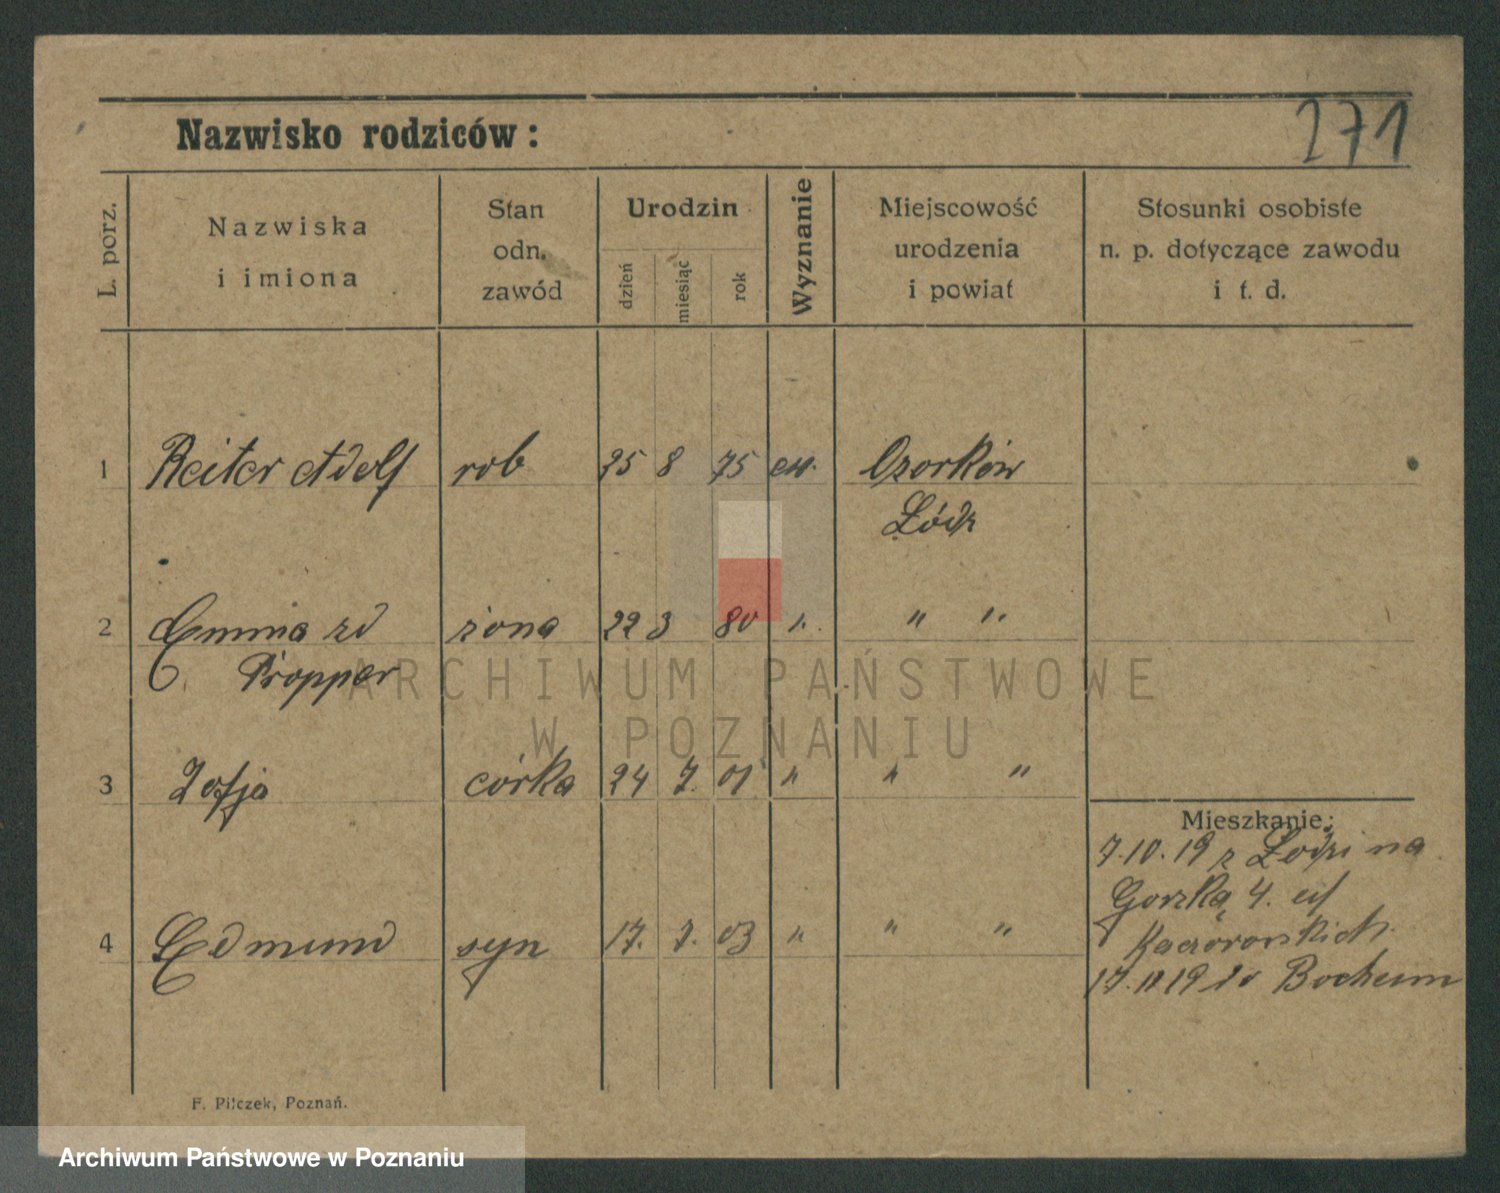 Nazwisko rodziców:
271
L. porz.
Nazwiska
i imiona
Stan
odn.
zawód
Urodzin
dzień
miesiąc
rok
Wyznanie
Miejscowość
urodzenia
i powiat
Stosunki osobiste
n. p. dotyczące zawodu
i t. d.
1 Reiter Adolf rob 25 8 75 ew. Ozorków
Łódź
2 Emma zd żona 22 3 80 " " "
Propper
3 Zofja córka 24 7. 01 " " "
4 Edmund syn 17. 7. 03 " " "
Mieszkanie:
7.10.19 z Łodzi na
Gorzką 4.
17.11 19 do Bochum
F. Pilczek, Poznań.
ARCHIWUM PAŃSTWOWE
W POZNANIU
Archiwum Państwowe w Poznaniu